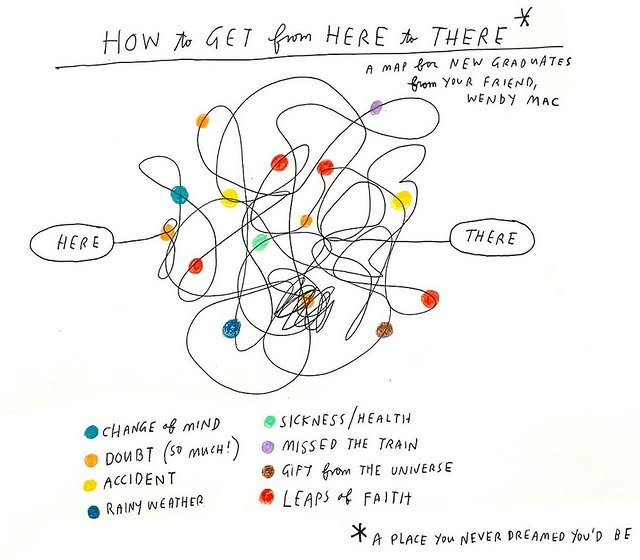 HOW to GET from HERE to THERE*
A MAP for NEW GRADUATES
from YOUR FRIEND,
WENDY MAC
HERE
THERE
CHANGE of MIND
DOUBT (SO MUCH!)
ACCIDENT
RAINY WEATHER
SICKNESS/HEALTH
MISSED THE TRAIN
GIFT from THE UNIVERSE
LEAPS of FAITH
* A PLACE YOU NEVER DREAMED YOU'D BE